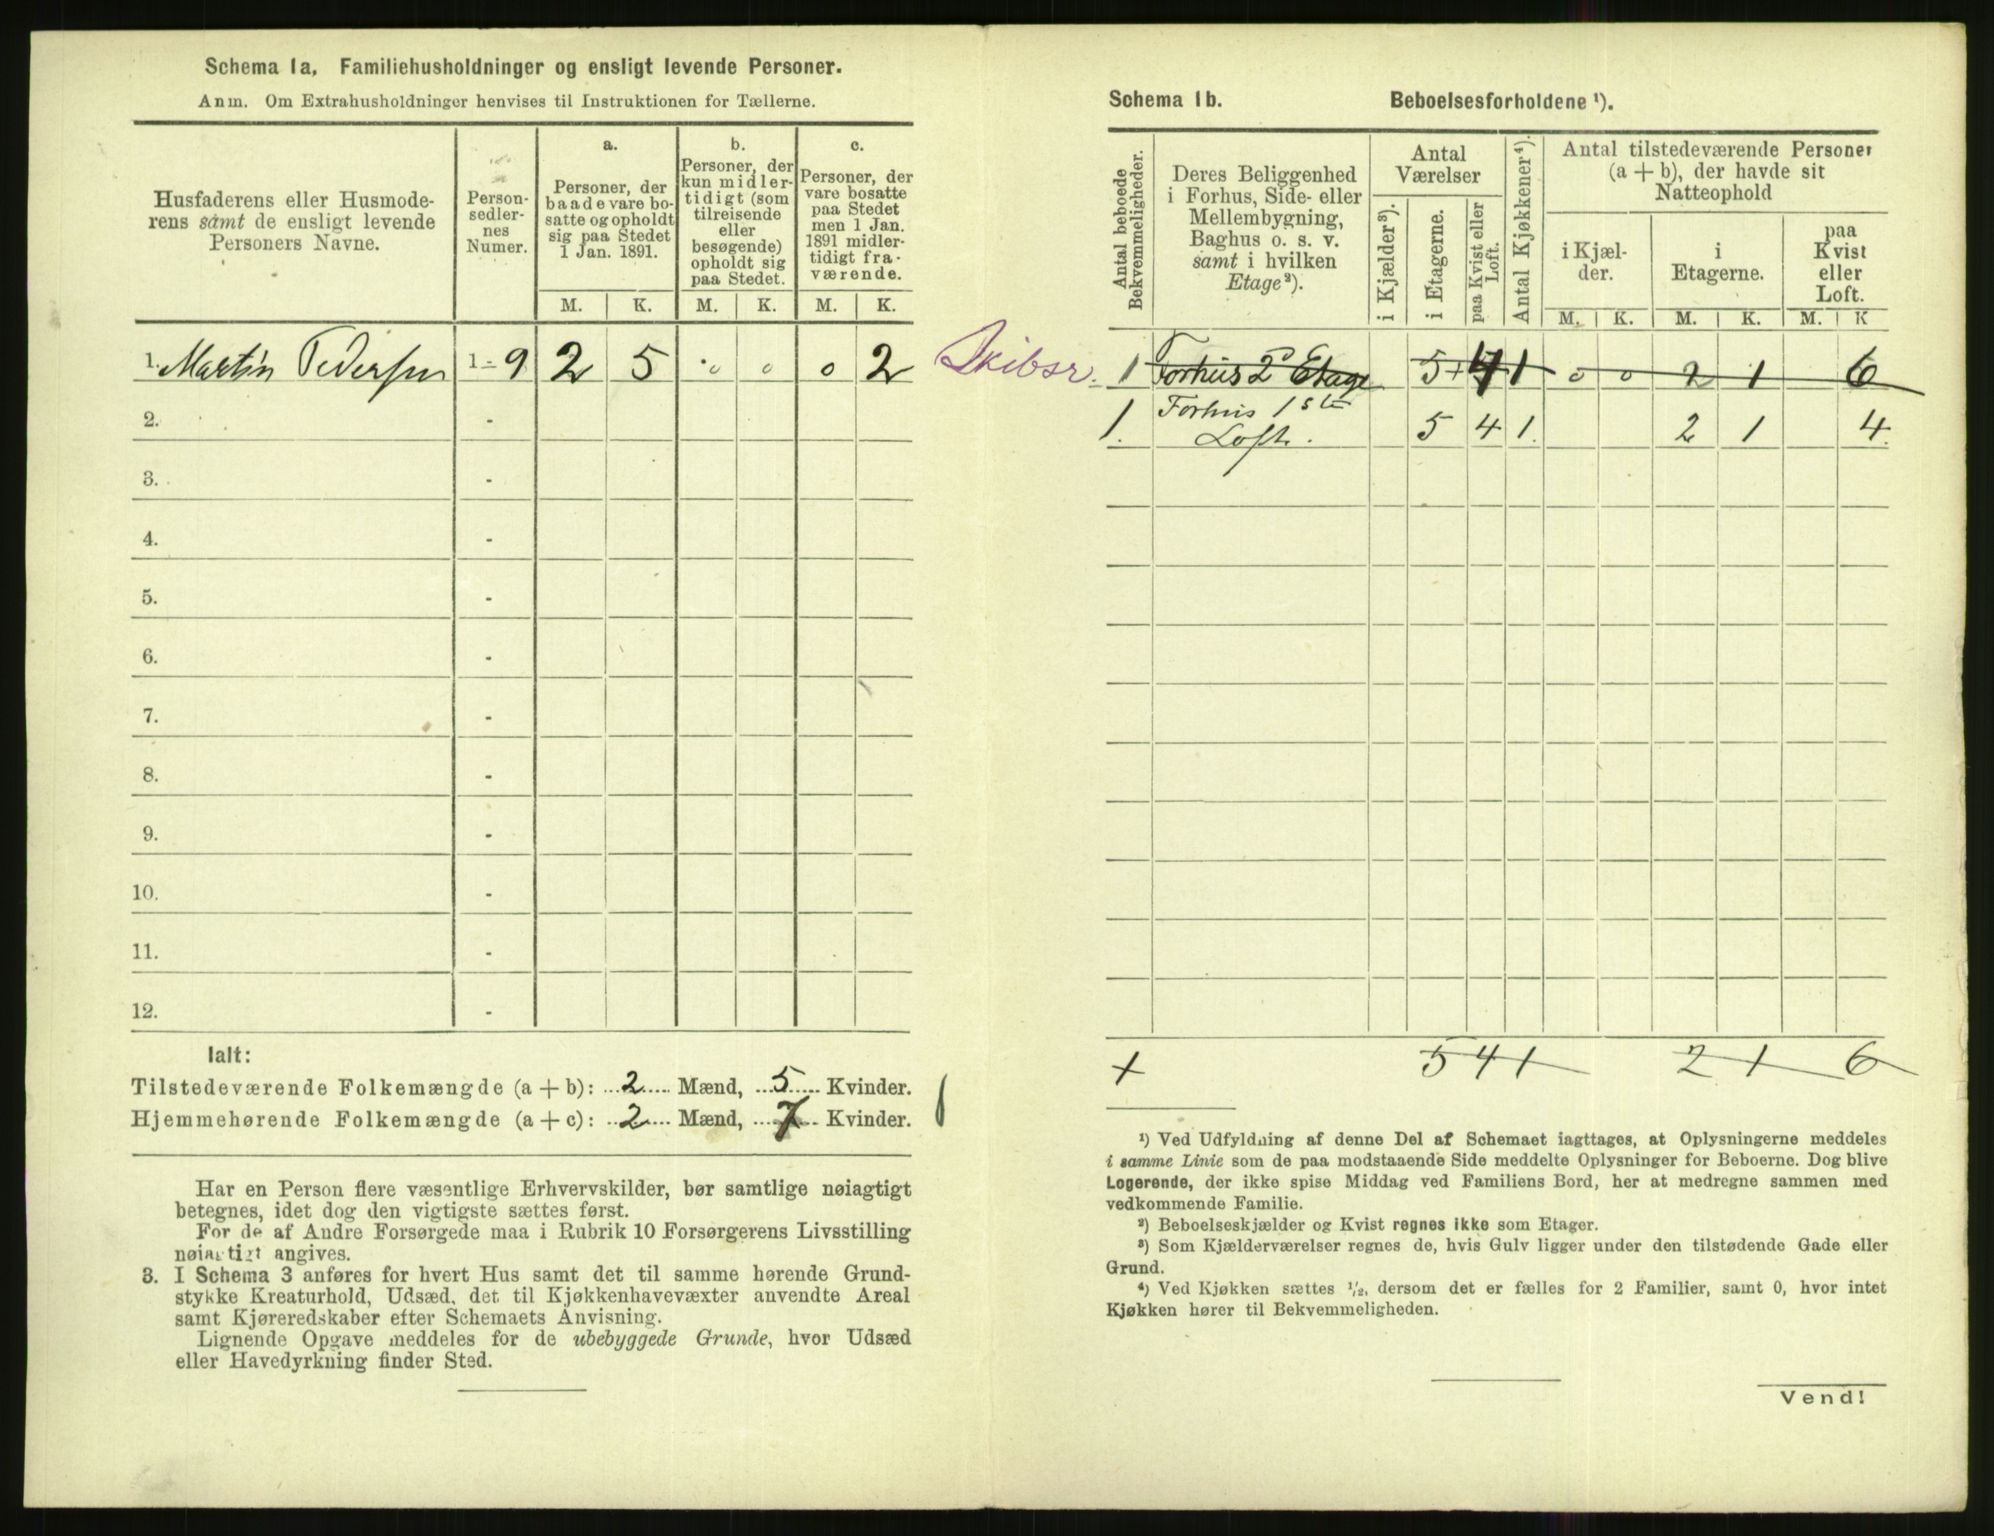 Schema 1a. Familiehusholdninger og ensligt levende Personer.
Anm. Om Extrahusholdninger henvises til Instruktionen for Tællerne.
Husfaderens eller Husmode-
rens samt de ensligt levende
Personers Navne.
Person-
sedler-
nes
Numer.
a.
Personer, der
baade vare bo-
satte og opholdt
sig paa Stedet
1 Jan. 1891.
b.
Personer, der
kun midler-
tidigt (som
tilreisende
eller
besøgende)
opholdt sig
paa Stedet.
c.
Personer, der
vare bosatte
paa Stedet
men 1 Jan.
1891 midler-
tidigt fra-
værende.
M. K. M. K. M. K.
1. Martin Pedersen 1-9 2 5 0 0 0 2
2. -
3. -
4. -
5. -
6. -
7. -
8. -
9. -
10. -
11. -
12. -
Ialt:
Tilstedeværende Folkemængde (a + b): 2 Mænd, 5 Kvinder.
Hjemmehørende Folkemængde (a + c): 2 Mænd, 7 Kvinder.
Har en Person flere væsentlige Erhvervskilder, bør samtlige nøiagtigt
betegnes, idet dog den vigtigste sættes først.
For de af Andre Forsørgede maa i Rubrik 10 Forsørgerens Livsstilling
nøiagtigt angives.
3. I Schema 3 anføres for hvert Hus samt det til samme hørende Grund-
stykke Kreaturhold, Udsæd, det til Kjøkkenhavevæxter anvendte Areal
samt Kjøreredskaber efter Schemaets Anvisning.
Lignende Opgave meddeles for de ubebyggede Grunde, hvor Udsæd
eller Havedyrkning finder Sted.
Schema 1b. Beboelsesforholdene ¹).
Antal beboede
Bekvemmeligheder.
Deres Beliggenhed
i Forhus, Side- eller
Mellembygning,
Baghus o. s. v.
samt i hvilken
Etage²).
Antal
Værelser
i Kjælder³).
i Etagerne.
paa Kvist eller
Loft.
Antal Kjøkkener⁴).
Antal tilstedeværende Personer
(a + b), der havde sit
Natteophold
i Kjæl-
der.
i
Etagerne.
paa
Kvist
eller
Loft.
M. K. M. K. M. K
Skibsr. 1 Forhus 2 Etage 5 + 4 1 0 0 2 1 6
1. Forhus 1ste
Loft. 5 4 1. 2 1 4.
+ 5 4 1 2 1 6
¹) Ved Udfyldning af denne Del af Schemaet iagttages, at Oplysningerne meddeles
i samme Linie som de paa modstaaende Side meddelte Oplysninger for Beboerne. Dog blive
Logerende, der ikke spise Middag ved Familiens Bord, her at medregne sammen med
vedkommende Familie.
²) Beboelseskjælder og Kvist regnes ikke som Etager.
³) Som Kjælderværelser regnes de, hvis Gulv ligger under den tilstødende Gade eller
Grund.
⁴) Ved Kjøkken sættes ½, dersom det er fælles for 2 Familier, samt 0, hvor intet
Kjøkken hører til Bekvemmeligheden.
Vend!